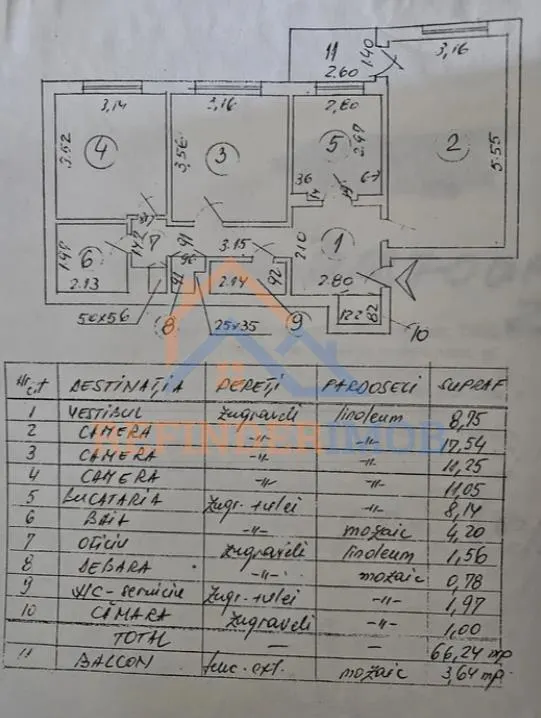 11
1.40
2.60
3.16
3.14
3.16
2.80
3.52
4
3.56
3
5
2.97
2
5.55
36
6
1.97
7
91
3.15
2.10
1
2.13
96
2.14
92
2.80
50x56
8
25x35
9
122
82
10
REFINDERIMOB
Nr. crt DESTINAȚIA PEREȚI PARDOSELI SUPRAF
1 VESTIBUL zugraveli linoleum 8,75
2 CAMERA -"- -"- 17,54
3 CAMERA -"- -"- 11,25
4 CAMERA -"- -"- 11,05
5 BUCATARIA Zugr.+ulei -"- 8,14
6 BAIA -"- mozaic 4,20
7 OFICIU zugraveli linoleum 1,56
8 DEBARA -"- mozaic 0,78
9 WC-serviciu Zugr.+ulei -"- 1,97
10 CĂMARA zugraveli -"- 1,00
TOTAL — — 66,24 mp
11 BALCON tenc.ext. mozaic 3,64 mp.